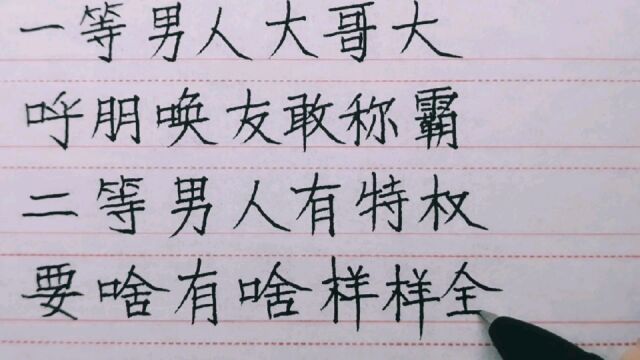 一等男人大哥大
呼朋唤友敢称霸
二等男人有特权
要啥有啥样样全